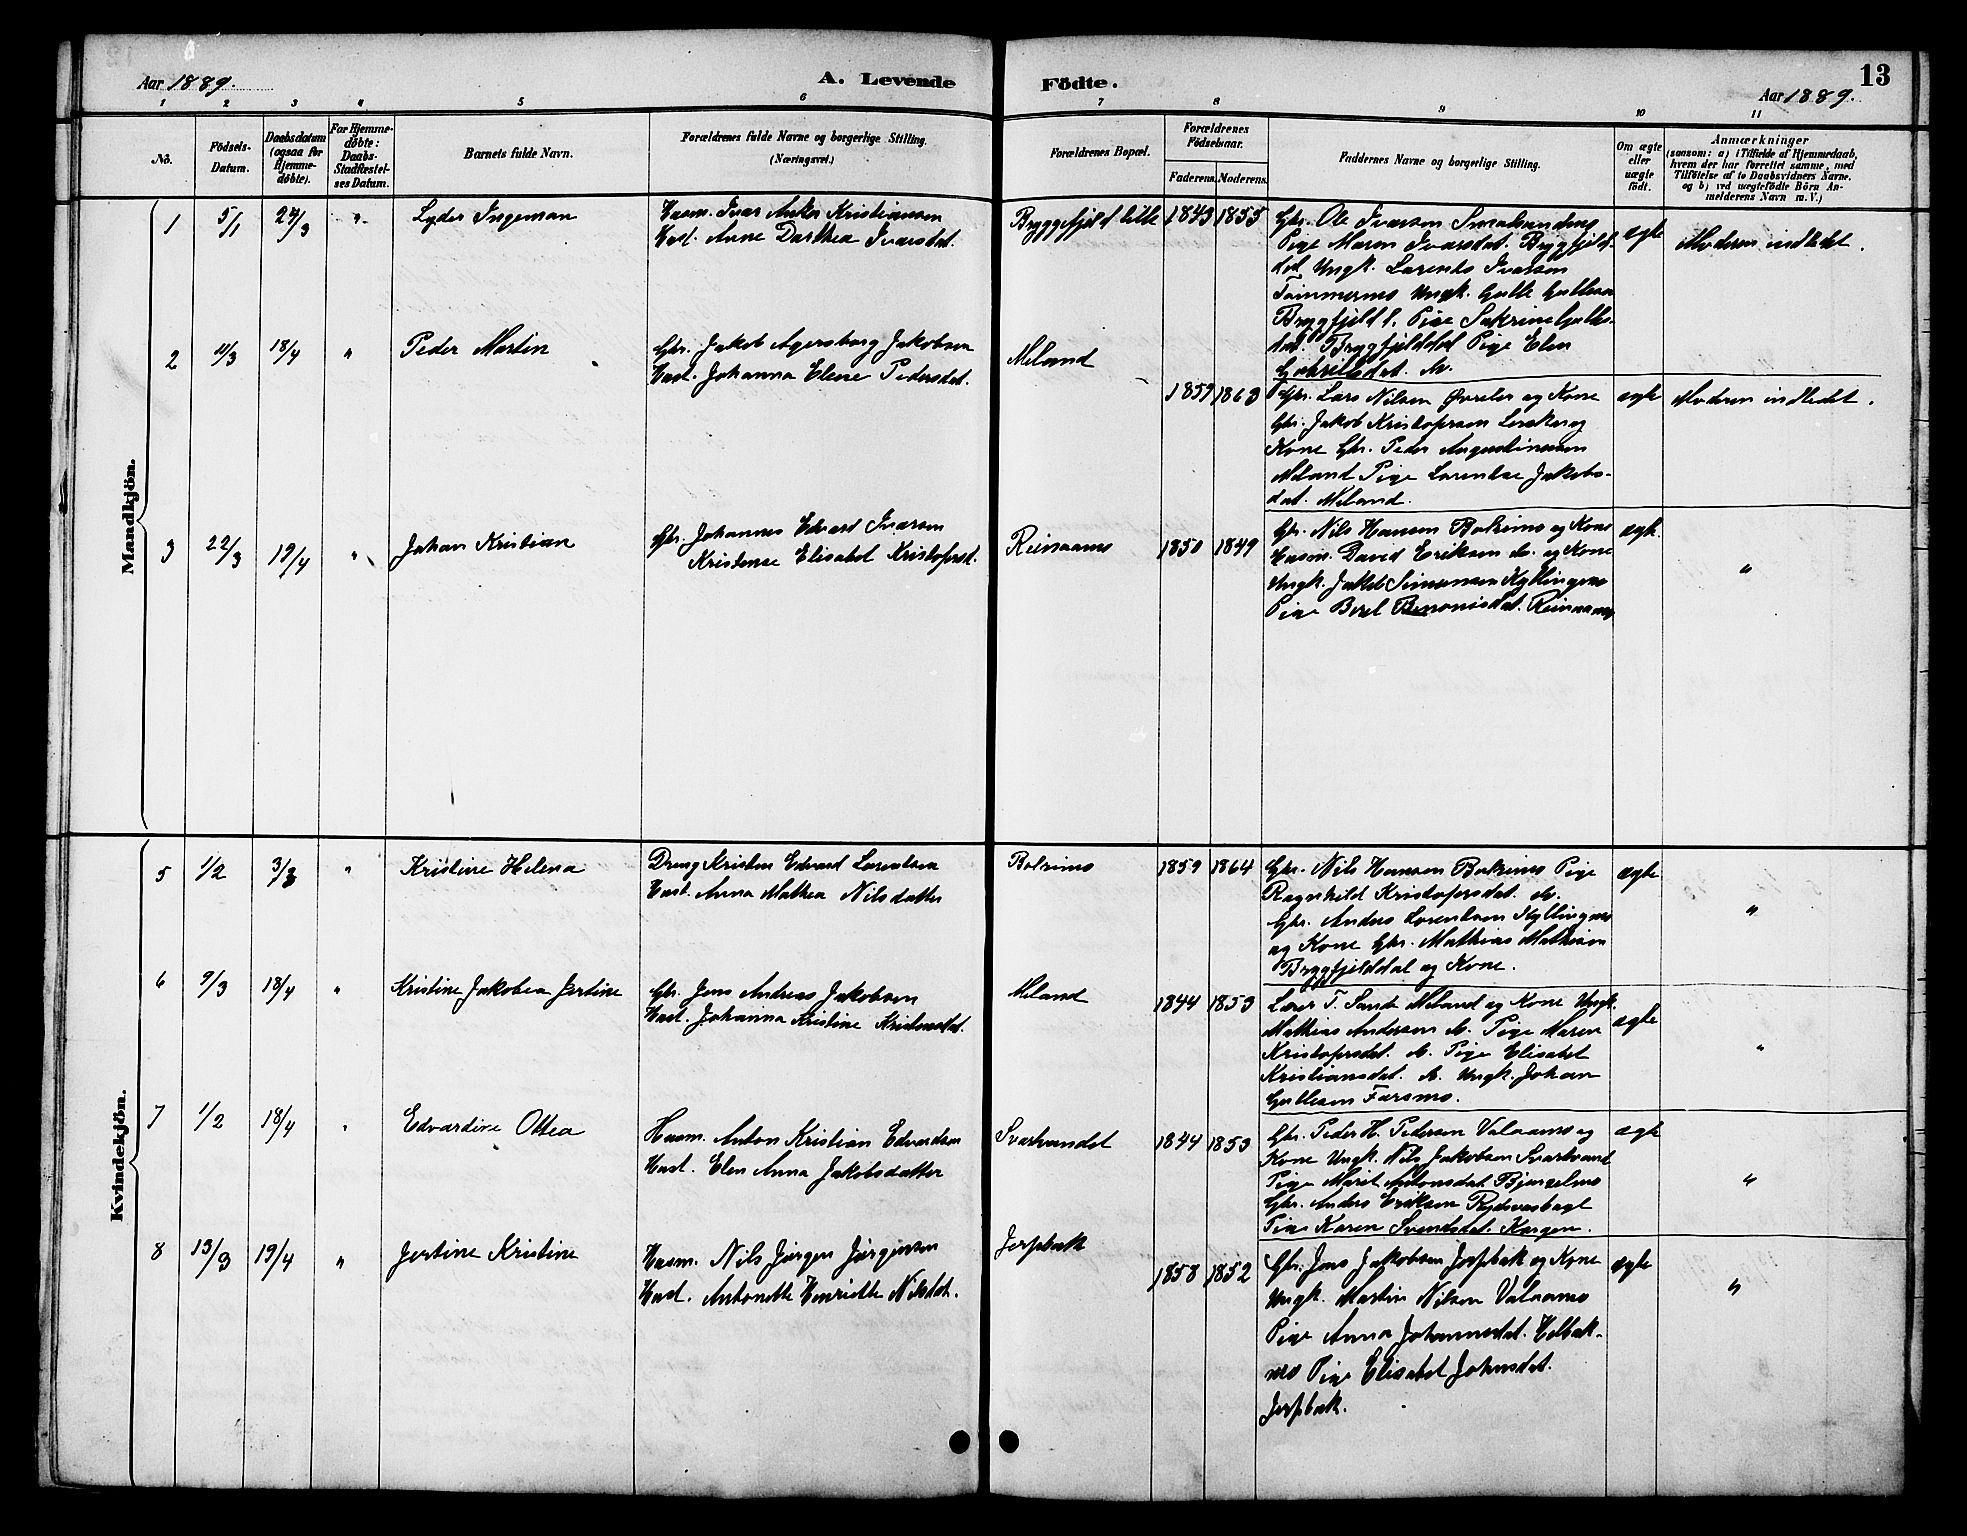 Aar 1889.
A. Levende
Födte.
13
Aar 1889.
1 2 3 4 5 6 7 8 9 10 11
No.
Födsels-
Datum.
Daabsdatum
(ogsaa for
Hjemme-
döbte).
For Hjemme-
döbte:
Daabs-
Stadfæstel-
ses Datum.
Barnets fulde Navn.
Forældrenes fulde Navne og borgerlige Stilling.
(Næringsvei.)
Forældrenes Bopæl.
Forældrenes
Födselsaar.
Faderens.
Moderens.
Faddernes Navne og borgerlige Stilling.
Om ægte
eller
uægte
födt.
Anmærkninger
(saasom: a) i Tilfælde af Hjemmedaab,
hvem der har forrettet samme, med
Tilföielse af to Daabsvidners Navne,
og b) ved uægtefödte Börn An-
melderens Navn m. V.)
Mandkjön.
1 5/1 24/3 " Lyder Ingeman
Husm. Ivar Anker Kristiansen
Hust. Anne Darthea Ivarsdat.
Bryggefjeld lille 1843 1855
Gbr. Ole Ivarsen Smalsundmo
Pige Maren Ivarsdat. Brygfjeld-
dal Ungk. Larents Ivarsen
Tømmernes Ungk. Gulle Gullesen
Brygfjeld l. Pige Sakrine Gulles-
dat. Brygfjelddal Pige Elen
Gabrielsdat. do.
ægte Moderen indledet.
2 11/3 18/4 " Peder Martin
Gbr. Jakob Agersborg Jakobsen
Hust. Johanna Elene Pedersdat.
Meland 1859 1863
Gbr. Lars Nilsen Øvreler og Kone
Gbr. Jakob Kristofersen og
Kone Gbr. Peder Augustinussen
Meland Pige Larentse Jakobs-
dat. Meland.
ægte Moderen indledet.
3 22/3 19/4 " Johan Kristian
Gbr. Johannes Edvard Ivarsen
Kristense Elisabet Kristofersd.
Reinaamo 1850 1849
Gbr. Nils Hansen Bolermo og Kone
Husm. David Eriksen do. og Kone
Ungk. Jakob Simonsen Kyllingmo
Pige Berel Benonisdat. Reinaamo
ægte "
Kvindekjön.
5 1/2 3/3 " Kristine Helena
Dreng Kristen Edvard Larentsen
Hust. Anna Mathea Nilsdatter
Bolermo 1859 1864
Gbr. Nils Hansen Bolermo Pige
Ragnhild Kristofersdat. do.
Gbr. Anders Lorentsen Kyllingmo
og Kone Gbr. Mathias Mathisen
Brygfjelddal og Kone.
ægte "
6 9/3 18/4 " Kristine Jakobea Jertine
Gbr. Jens Andreas Jakobsen
Hust. Johanna Kristine Kristensdat.
Meland 1844 1853
Lærer T. Sand Meland og Kone Ungk.
Mathias Andersen do. Pige Maren
Kristofersdat. do. Pige Elisabet
Kristiansdat. do. Ungk. Johan
Gullesen Farsmo.
ægte "
7 1/2 18/4 " Edvardine Ottea
Husm. Anton Kristian Edvardsen
Hust. Elen Anna Jakobsdatter
Svartvandet 1844 1853
Gbr. Peder H. Pedersen Valaamo og
Kone Ungk. Nils Jakobsen Svartvand
Pige Marit Antonsdat.
Gbr. Anders Eriksen
Pige Karen Svendsdat.
ægte "
8 13/3 19/4 " Jertine Kristine
Husm. Nils Jørgen Jørgensen
Hust. Antonette Henriette Nilsdat.
Jerpbak 1858 1852
Gbr. Jens Jakobsen Jerpbak og Kone
Ungk. Martin Nilsen Valaamo
Pige Anna Johannesdat. Helbak-
mo Pige Elisabet Johansdat.
Jerpbak.
ægte "